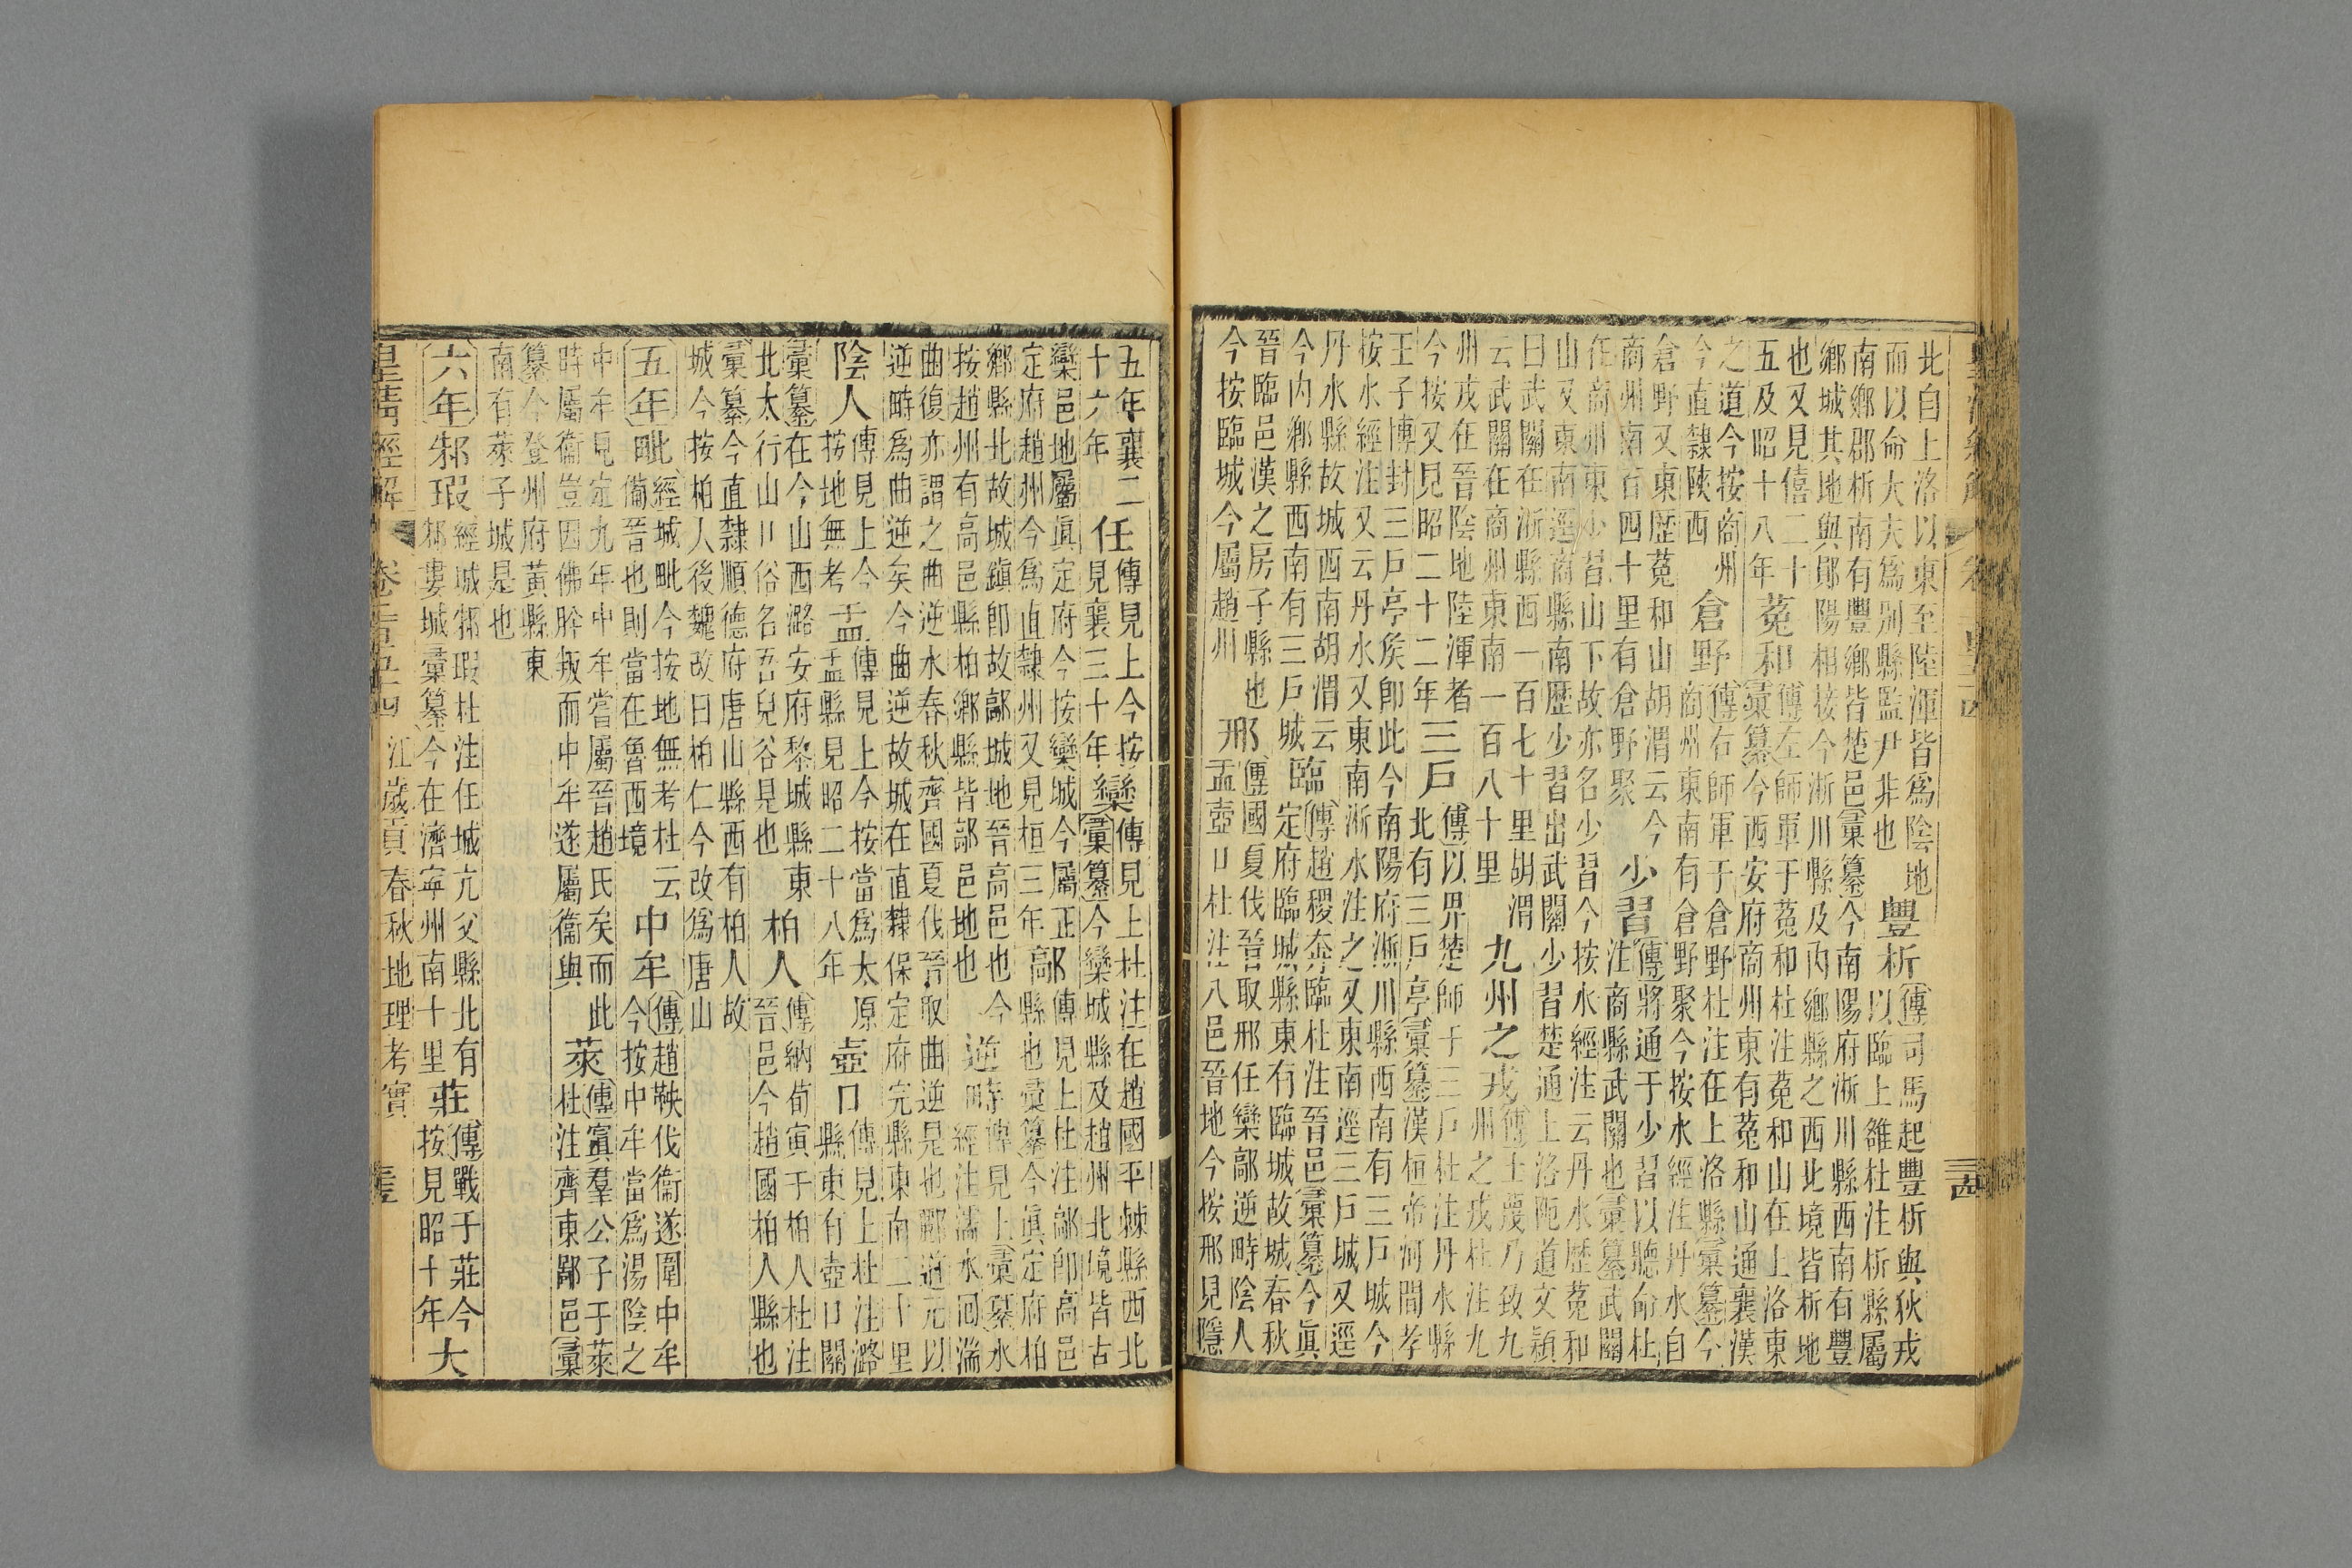 北自上洛以東至陸渾皆為陰地
而以命大夫為別縣監尹非也
豐析
傳司馬起豐析與狄戎
以臨上雒杜注析縣屬
南鄉郡析南有豐鄉皆楚邑彙纂今南陽府淅川縣西南有豐
鄉城其地與鄖陽相接今淅川縣及內鄉縣之西北境皆析地
也又見僖二十
五及昭十八年
菟和
傳左師軍于菟和杜注菟和山在上洛東
彙纂今西安府商州東有菟和山通襄漢
之道今按商州
今直隸陝西
倉野
傳右師軍于倉野杜注在上洛縣彙纂今
商州東南有倉野聚今按水經注丹水自
倉野又東歷菟和山胡渭云今
商州南百四十里有倉野聚
少習
傳將通于少習以聽命杜
注商縣武關也彙纂武關
在商州東少習山下故亦名少習今按水經注云丹水歷菟和
山又東南逕商縣南歷少習出武關少習楚通上洛阨道文穎
曰武關在淅縣西一百七十里胡渭
云武關在商州東南一百八十里
九州之戎
傳士蔑乃致九
州之戎杜注九
州戎在晉陰地陸渾者
今按又見昭二十二年
三戶
傳以畀楚師于三戶杜注丹水縣
北有三戶亭彙纂漢桓帝河間孝
王子博封三戶亭矦即此今南陽府淅川縣西南有三戶城今
按水經注又云丹水又東南淅水注之又東南逕三戶城又逕
丹水縣故城西南胡渭云
今內鄉縣西南有三戶城
臨
傳趙稷奔臨杜注晉邑彙纂今眞
定府臨城縣東有臨城故城春秋
晉臨邑漢之房子縣也
今按臨城今屬趙州
邢
傳國夏伐晉取邢任欒鄗逆畤陰人
盂壺口杜注八邑晉地今按邢見隱
五年襄二
十六年
任
傳見上今按
見襄三十年
欒
傳見上杜注在趙國平棘縣西北
彙纂今欒城縣及趙州北境皆古
欒邑地屬眞定府今按欒城今屬正
定府趙州今為直隸州又見桓三年
鄗
傳見上杜注鄗即高邑
縣也彙纂今眞定府柏
鄉縣北故城鎭即故鄗城地晉高邑也今
按趙州有高邑縣柏鄉縣皆鄗邑地也
逆畤
傳見上彙纂水
經注濡水囘湍
曲復亦謂之曲逆水春秋齊國夏伐晉取曲逆是也酈道元以
逆畤為曲逆矣今曲逆故城在直隸保定府完縣東南二十里
陰人
傳見上今
按地無考
盂
傳見上今按當為太原
盂縣見昭二十八年
壺口
傳見上杜注潞
縣東有壺口關
彙纂在今山西潞安府黎城縣東
北太行山口俗名吾兒谷是也
柏人
傳納荀寅于柏人杜注
晉邑今趙國柏人縣也
彙纂今直隸順德府唐山縣西有柏人故
城今按柏人後魏改曰柏仁今改為唐山
五年
毗
經城毗今按地無考杜云
備晉也則當在魯西境
中牟
傳趙鞅伐衞遂圍中牟
今按中牟當為湯陰之
中牟見定九年中牟嘗屬晉趙氏矣而此
時屬衞豈因佛肸叛而中牟遂屬衞與
萊
傳寘羣公子于萊
杜注齊東鄙邑彙
纂今登州府黃縣東
南有萊子城是也
六年
邾瑕
經城邾瑕杜注任城亢父縣北有
邾婁城彙纂今在濟寧州南十里
莊
傳戰于莊今
按見昭十年
大
皇清經解
卷二百五十四
江歲貢春秋地理考實